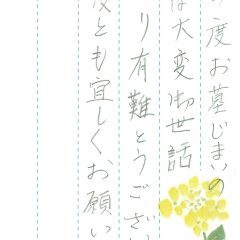 度お墓じまいの
は大変御世話
り有難とうござい
とも宜しくお願い